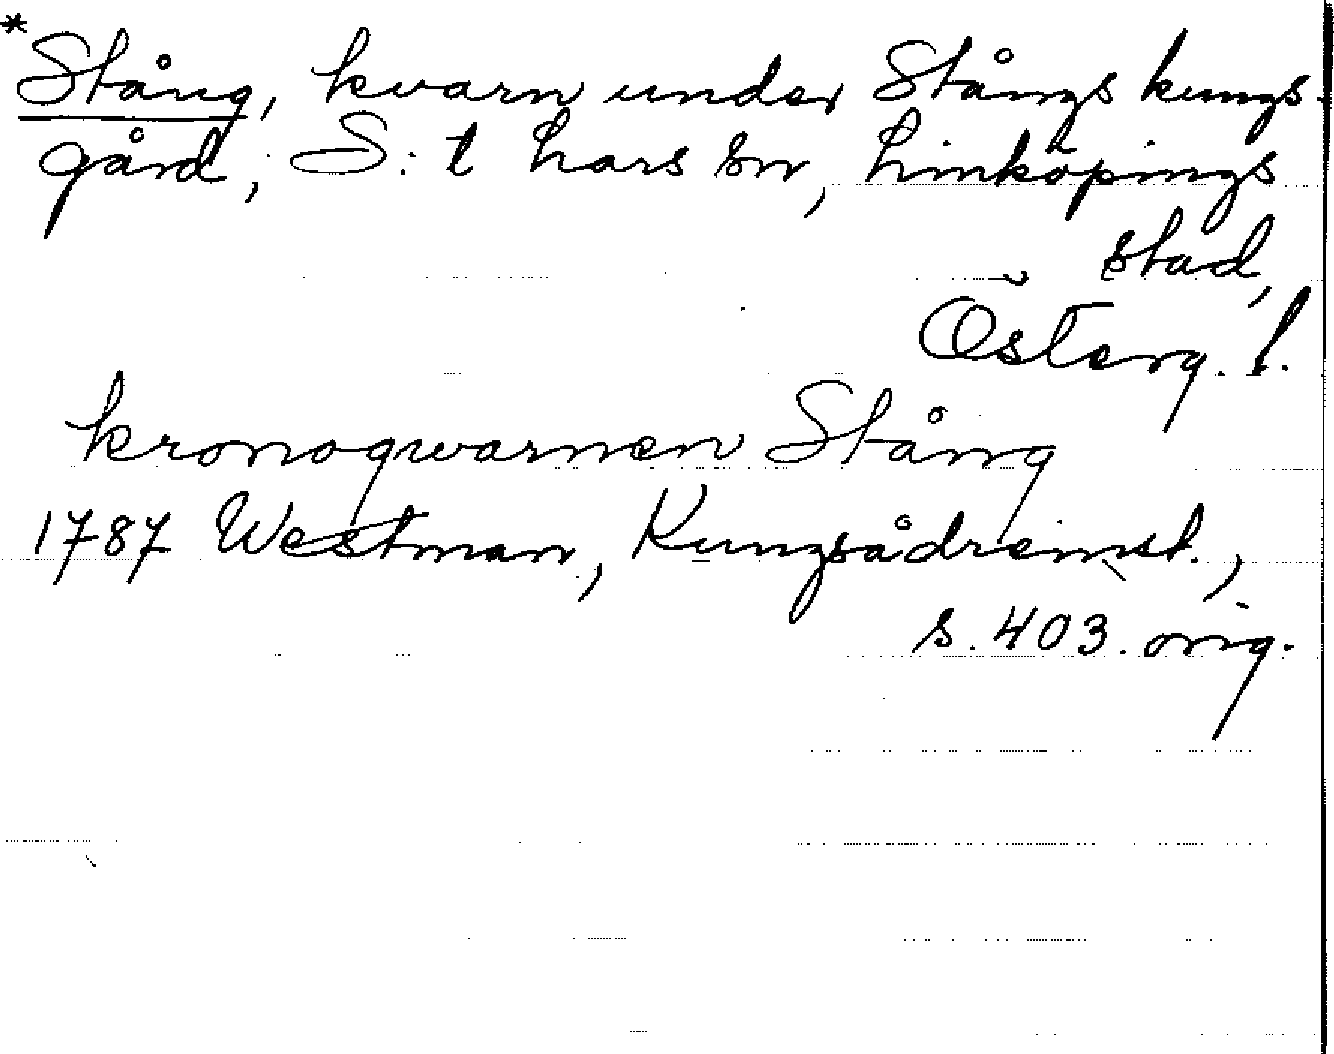 *
Stång, kvarn under Stångs kungs-
gård, S:t Lars sn, Linköpings
stad,
Österg. l.
kronoqwarnen Stång
1787 Westman, Kungsådreinst.,
s. 403. orig.